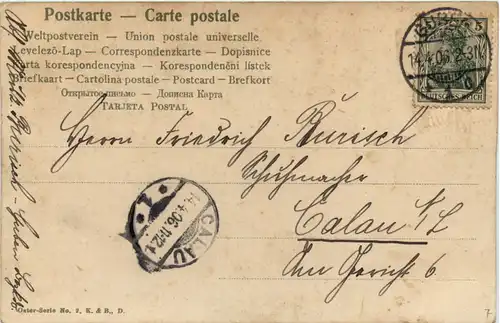 Postkarte – Carte postale
Weltpostverein – Union postale universelle
Levelező-Lap – Correspondenzkarte – Dopisnice
Karta korespondencyjna – Korespondenční lístek
Briefkaart – Cartolina postale – Postcard – Brefkort
Открытое письмо – Дописна Карта
TARJETA POSTAL
GUBEN
14.4.06. 2-3N.
5
DEUTSCHES REICH
Herrn Friedrich Burisch
Schuhmacher
Calau N/L
Am Gericht 6
CALAU
14.4.06. 11-12
* 1 *
Oster-Serie No. 2, K. & B., D.
7